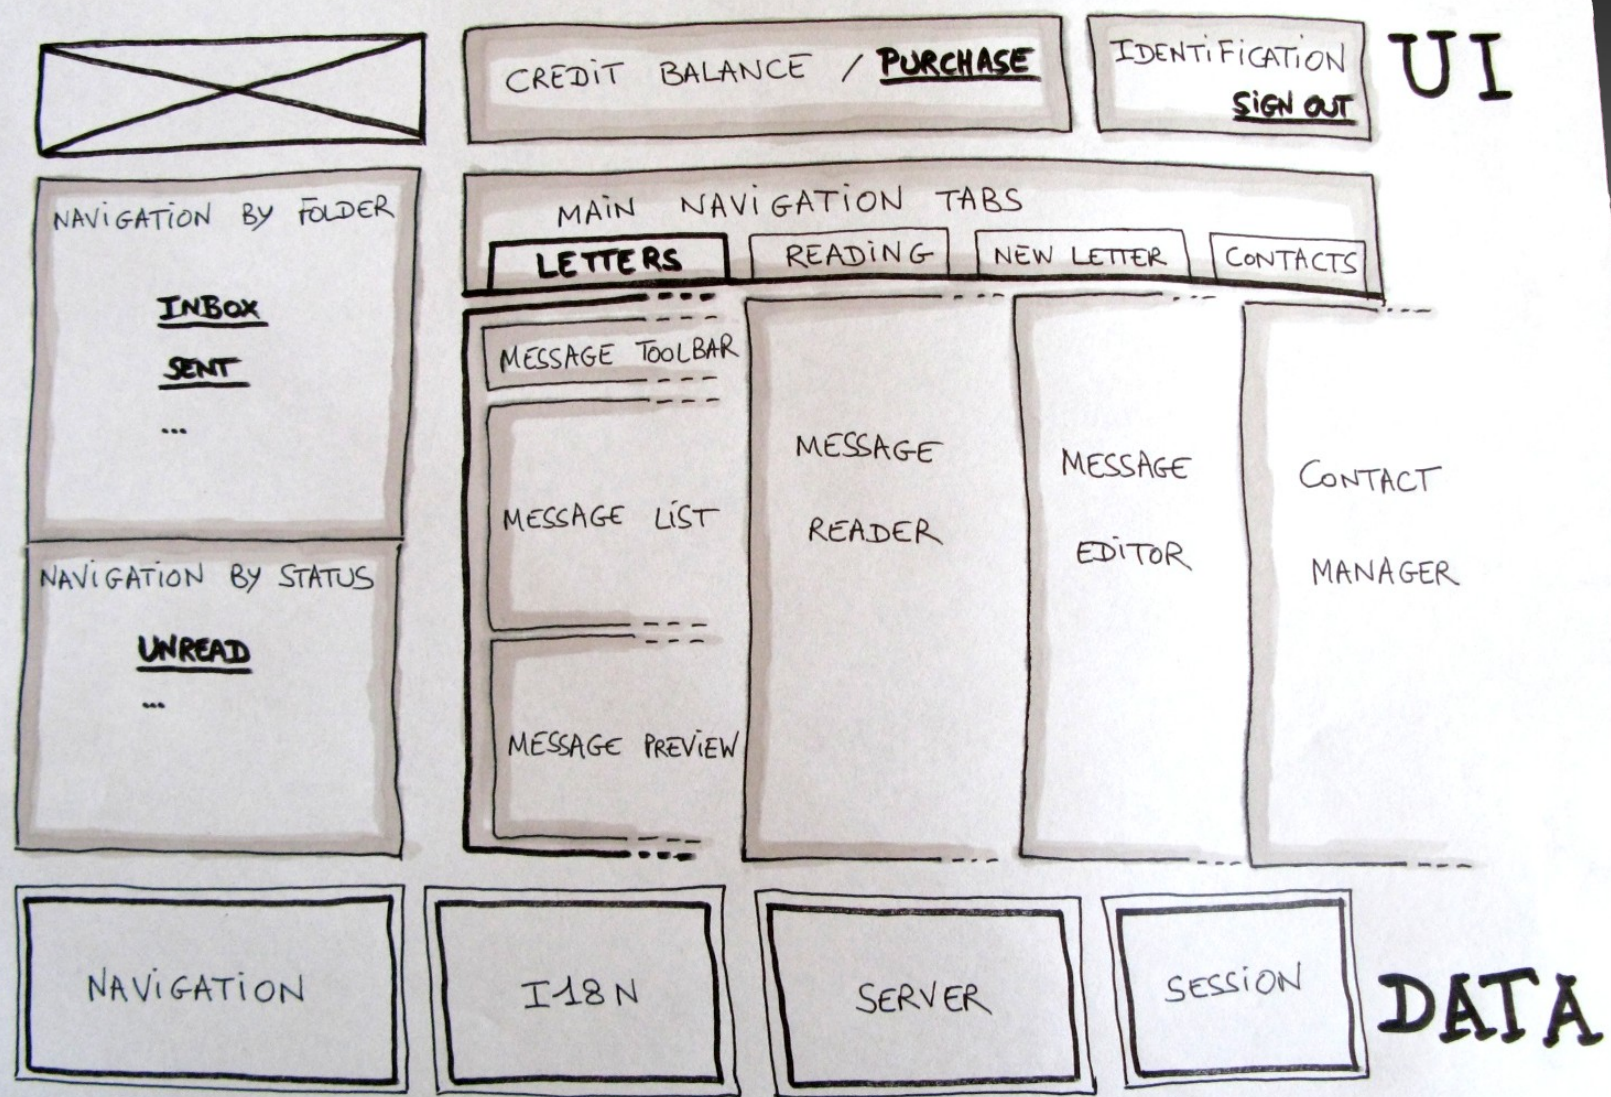 CREDIT BALANCE / PURCHASE
IDENTIFICATION
SIGN OUT
UI
NAVIGATION BY FOLDER
INBOX
SENT
...
NAVIGATION BY STATUS
UNREAD
...
MAIN NAVIGATION TABS
LETTERS
READING
NEW LETTER
CONTACTS
MESSAGE TOOLBAR
MESSAGE LIST
MESSAGE PREVIEW
MESSAGE
READER
MESSAGE
EDITOR
CONTACT
MANAGER
NAVIGATION
I18N
SERVER
SESSION
DATA